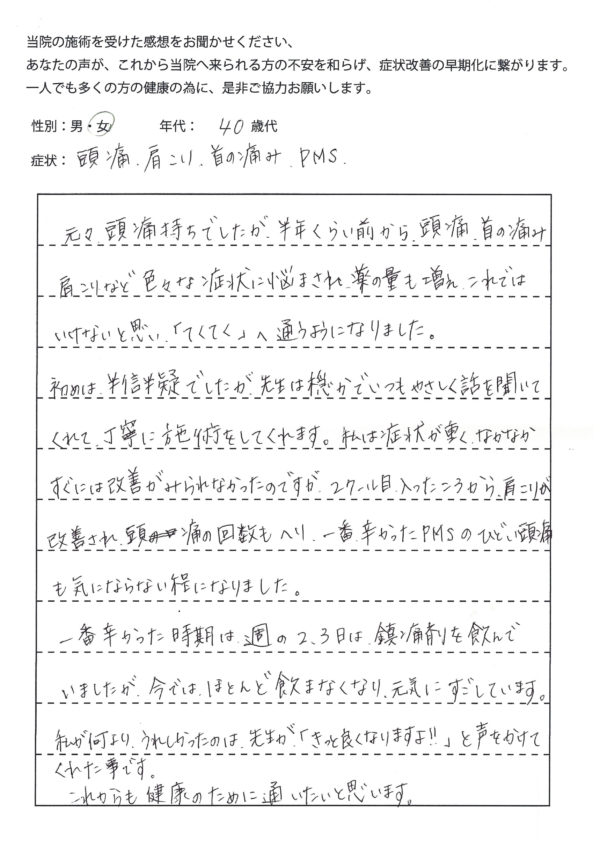 当院の施術を受けた感想をお聞かせください、
あなたの声が、これから当院へ来られる方の不安を和らげ、症状改善の早期化に繋がります。
一人でも多くの方の健康の為に、是非ご協力お願いします。
性別：男・女 年代： 40 歳代
症状： 頭痛、肩こり、首の痛み、PMS.
元々、頭痛持ちでしたが、半年くらい前から、頭痛、首の痛み
肩こりなど色々な症状に悩まされ、薬の量も増え、これでは
いけないと思い、「てくてく」へ通うようになりました。
初めは、半信半疑でしたが、先生は穏かでいつもやさしく話を聞いて
くれて、丁寧に施術をしてくれます。私は症状が重く、なかなか
すぐには改善がみられなかったのですが、2クール目、入ったころから、肩こりが
改善され、頭痛の回数もへり、一番、辛かったPMSのひどい頭痛
も気にならない程になりました。
一番辛かった時期は、週の2、3日は、鎮痛剤を飲んで
いましたが、今では、ほとんど飲まなくなり、元気にすごしています。
私が何より、うれしかったのは、先生が、「きっと良くなりますよ!!」と声をかけて
くれた事です。
これからも健康のために通いたいと思います。